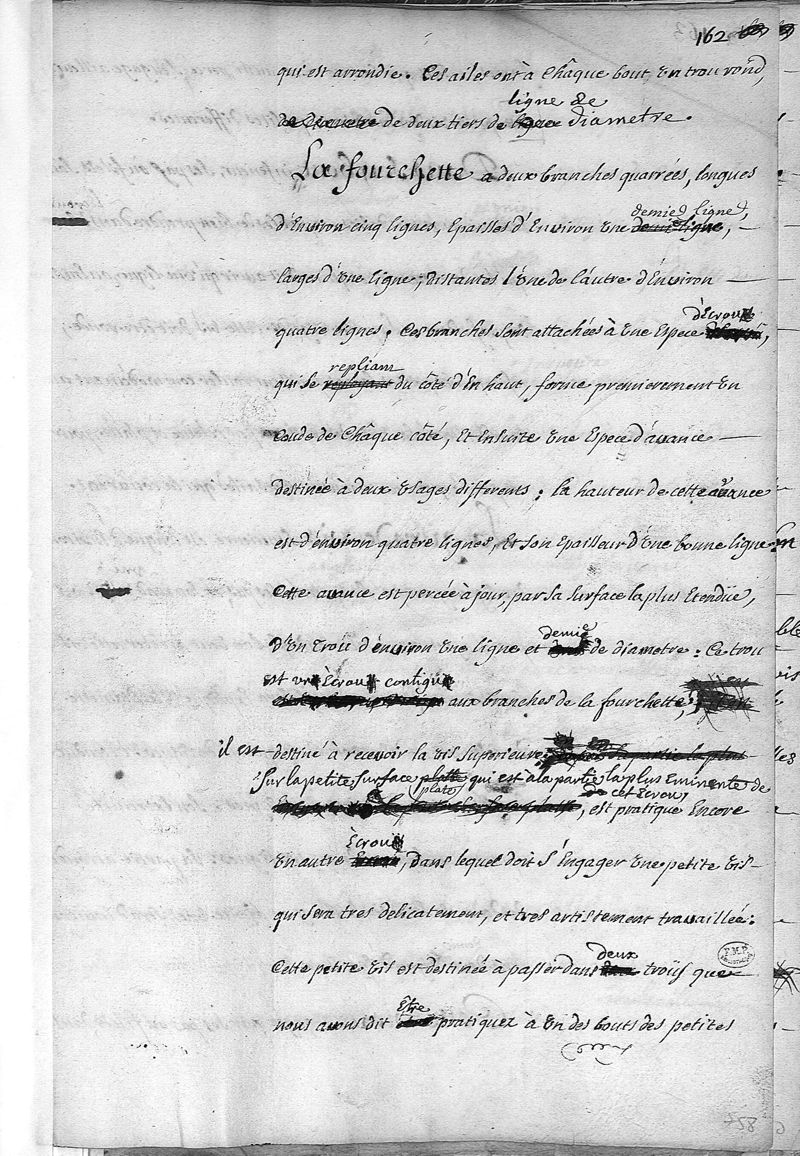 162
qui est arrondie. Ces ailes ont à Châque bout, un trou rond,
ligne de
de diametre de deux tiers de ligne diametre.
La fourchette a deux branches quarrées, longues
demie ligne,
d'Environ cinq lignes, Epaisses d'Environ une demie ligne,
larges d'une ligne, distantes l'une de l'autre d'Environ
d'Ecrou
quatre lignes. Ces branches sont attachées à une Espece
repliant
qui se repliant du côté d'en haut, forme premierement un
coude de Châque côté, Et ensuite une Espece d'avance
destinée à deux usages differents; la hauteur de cette avance
est d'environ quatre lignes, Et son Epaisseur d'une bonne ligne.
Cette avance est percée à jour, par sa surface la plus Etendüe,
demie
d'un trou d'environ une ligne et de diametre: Ce trou
est un Ecrou contigu
aux branches de la fourchette,
il est destiné à recevoir la vis superieure; la partie la plus
Sur la petite surface platte qui est à la partie la plus Eminente de
plate de cet Ecrou,
est pratiqué Encore
Ecrou
un autre, dans lequel doit s'Engager une petite vis
qui sera tres delicatement, et tres artistement travaillée.
deux
Cette petite vis est destinée à passer dans troüs que
Etre
nous avons dit pratiquez à un des bouts des petites
P.M.P.
758